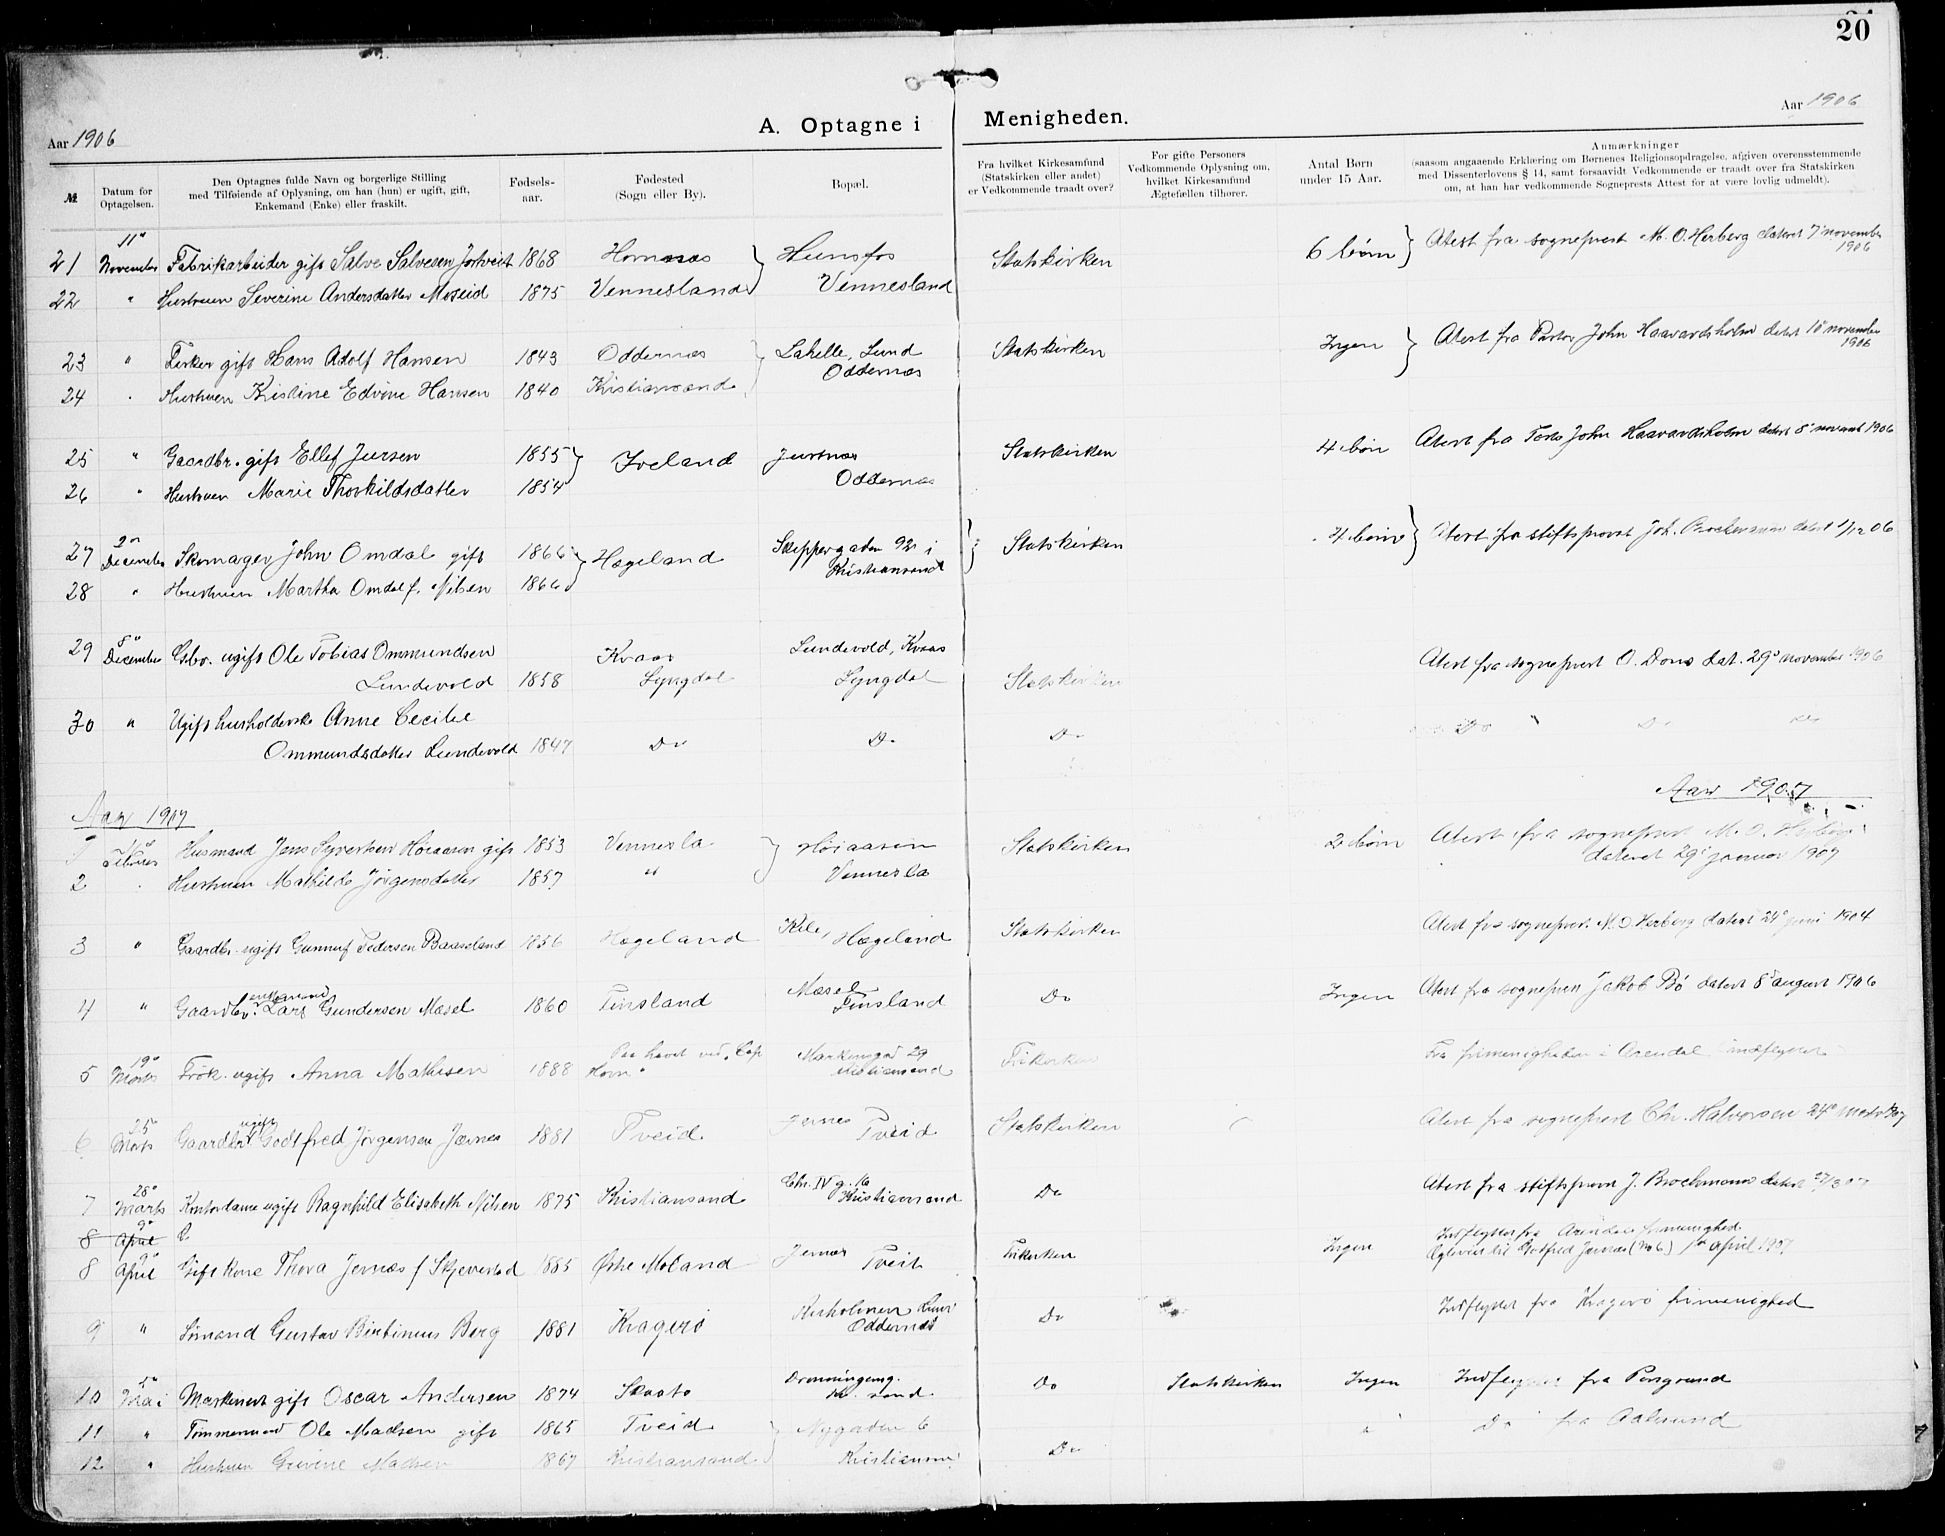 20
Aar 1906
A. Optagne i Menigheden.
Aar 1906
№
Datum for Optagelsen.
Den Optagnes fulde Navn og borgerlige Stilling
med Tilføiende af Oplysning, om han (hun) er ugift, gift,
Enkemand (Enke) eller fraskilt.
Fødsels-
aar.
Fødested
(Sogn eller By).
Bopæl.
Fra hvilket Kirkesamfund
(Statskirken eller andet)
er Vedkommende traadt over?
For gifte Personers
Vedkommende Oplysning om,
hvilket Kirkesamfund
Ægtefællen tilhører.
Antal Børn
under 15 Aar.
Anmærkninger
(saasom angaaende Erklæring om Børnenes Religionsopdragelse, afgiven overensstemmende
med Dissenterlovens § 14, samt forsaavidt Vedkommende er traadt over fra Statskirken
om, at han har vedkommende Sogneprests Attest for at være lovlig udmeldt).
21 11te November Fabrikarbeider gift Salve Salvesen 1868 Hornnæs Hunsfos Statskirken 6 børn Atest fra sogneprest M. O. Herberg dateret 7 november 1906
22 " Hustruen Severine Andersdatter Moseid 1875 Vennesland Vennesland
23 " Fisker gift Hans Adolf Hansen 1843 Oddernæs Lahelle, Lund Oddernæs Statskirken Ingen Atest fra Pastor John Haavardsholm datert 10 november 1906
24 " Hustruen Kristine Edvine Hansen 1840 Kristiansand
25 " Gaardbr. gift Ellef Jursen 1855 Iveland Justnæs Oddernæs Statskirken 4 børn Atest fra John Haavardsholm datert 8 1906
26 " Hustruen Marie Thorkildsdatter 1854
27 2den December Skomager John Omdal gift 1866 Hægeland Skippergaden 92 i Kristiansand Statskirken 4 børn Atest fra stiftsprovst Joh. datert 1/12 06
28 " Hustruen Martha Omdal f. Nilsen 1866
29 8de December Gbr. ugift Ole Tobias Ommundsen
Lundevold 1858 Kvaas Lyngdal Lundevold, Kvaas Lyngdal Statskirken Atest fra sogneprest O. Dons dat. 29 november 1906
30 " Ugift husholderske Anne Cecilie
Ommundsdatter Lundevold 1847 Do Do Do Do " Do
Aar 1907
Aar 1907
Februar Husmand Jens Syvertsen Høiaasen gift 1853 Vennesla Høiaasen Statskirken 2 børn Atest fra sogneprest M. O. Herberg
dateret 29 januar 1907
2 " Hustruen Mathilde Jørgensdatter 1857 " Vennesla
3 " Gaardbr. ugift Gunnuf Pedersen Baaseland 1856 Hægeland Kile, Hægeland Statskirken Atest fra sogneprest M. O. Herberg datert 24 juni 1904
4 " Gaardbr. enkemand Lars Gundersen Mæsel 1860 Finsland Mæsel Finsland Do Ingen Atest fra sogneprest Jakob Bø datert 8 august 1906
5 19de Marts Frøk. ugift Anna Mathisen 1888 Paa havet ved "Cap Horn" Markensgd 29 Kristiansand Frikirken Fra frimenigheden i Arendal indflyttet
6 25 Marts Gaardbr. ugift Godtfred Jørgensen Jærnes 1881 Tveid Jernes Tveid Statskirken Atest fra sogneprest Chr. Halvorsen 24 marts 1907
7 28de Marts Kontordame ugift Ragnhild Elisabeth Nilsen 1875 Kristiansand Chr. IV g. 16 Kristiansand Do Atest fra stiftsprovst J. Brochmann datert 27/3 07
8 9de April G
8 9de April Gift kone Thora Jernæs f Skjevestad 1885 Østre Moland Jernæs Tveit Frikirken Ingen Indflyttet fra Arendals frimenighed
Gotfred Jernæs (No 6) 1ste april 1907
9 " Sømand Gustav Bertinius Berg 1881 Kragerø Oddernæs Do Indflyttet fra Kragerø frimenighed
10 5te Mai Maskinist gift Oscar Andersen 1874 Skaatø Dronningensg. Kr. sand Do Statskirken Ingen Indflyttet fra Porsgrund
11 " Tømmermand Ole Madsen gift 1865 Tveid Nygaden 6 Kristiansand Do " Do fra Aalesund
12 " Hustruen Madsen 1867 Kristiansand